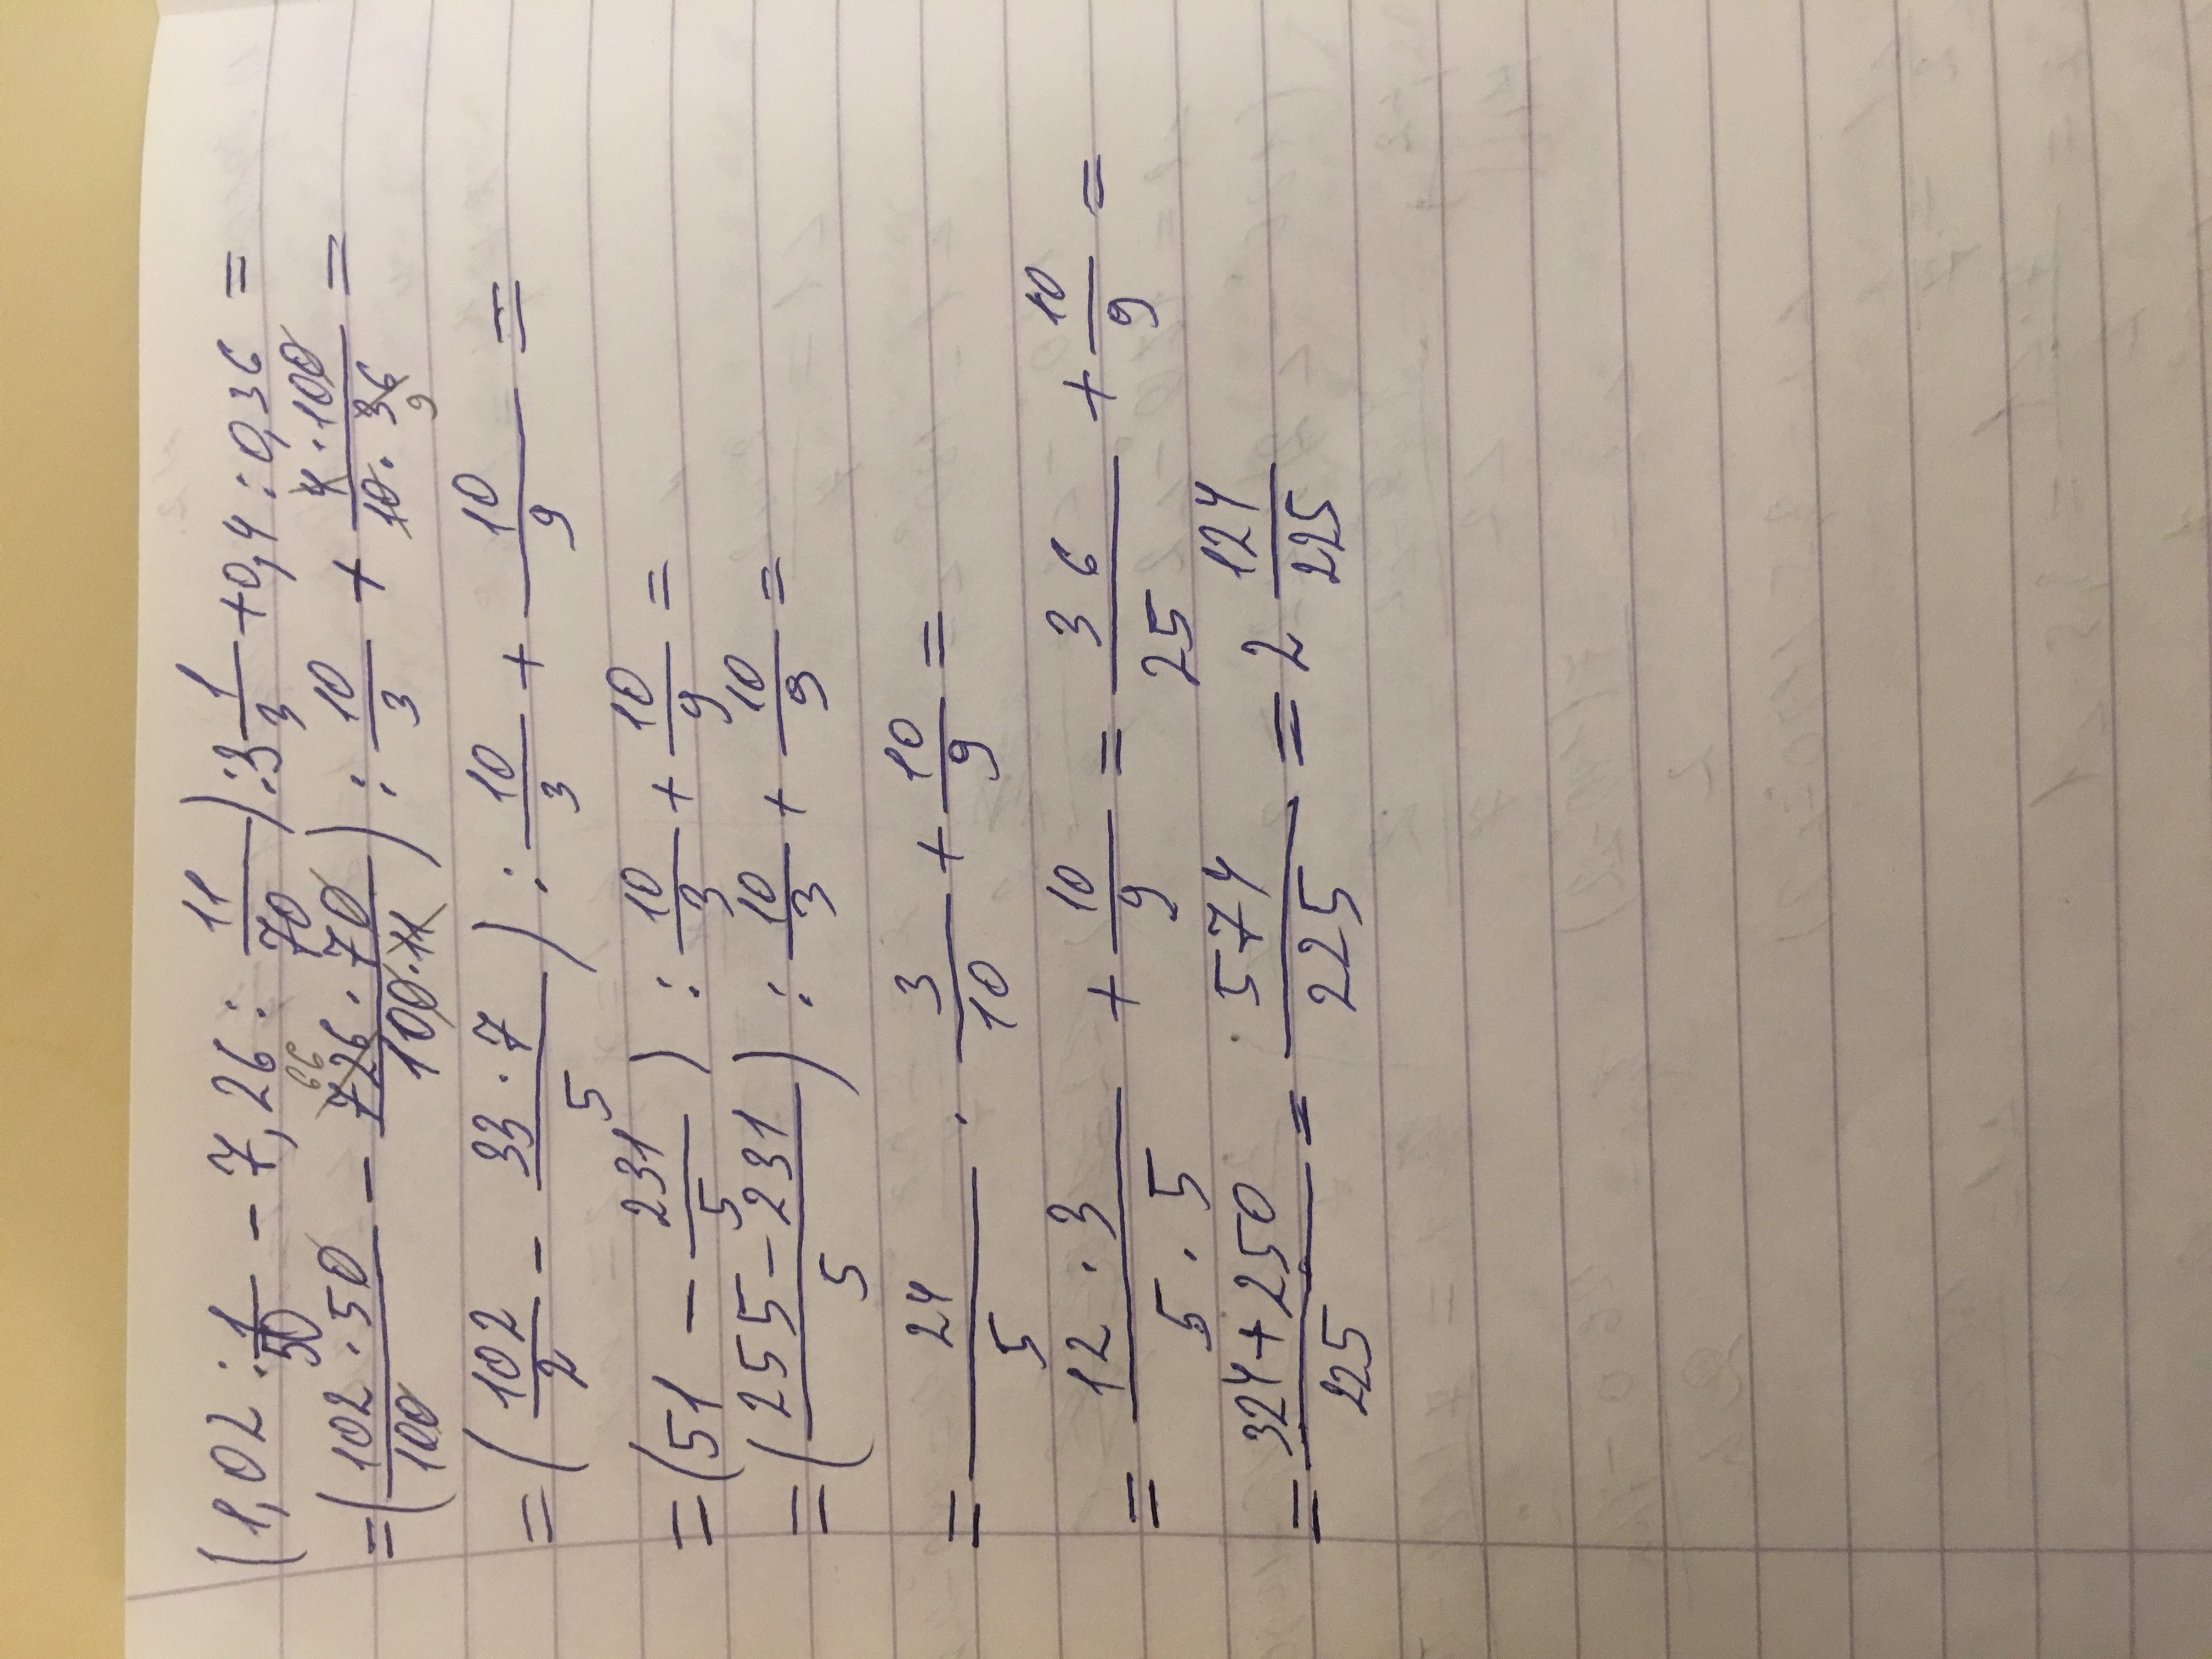 (1,02 : 1/50 - 7,26 : 11/70) : 3 1/3 + 0,4 : 0,36 =
= (102 · 50/100 - 726 · 70/100 · 11) : 10/3 + 4 · 100/10 · 36 =
66
9
= (102/2 - 33 · 7/5) : 10/3 + 10/9 =
= (51 - 231/5) : 10/3 + 10/9 =
= (255 - 231/5) : 10/3 + 10/9 =
= 24/5 · 3/10 + 10/9 =
= 12 · 3/5 · 5 + 10/9 = 36/25 + 10/9 =
= 324 + 250/225 = 574/225 = 2 124/225